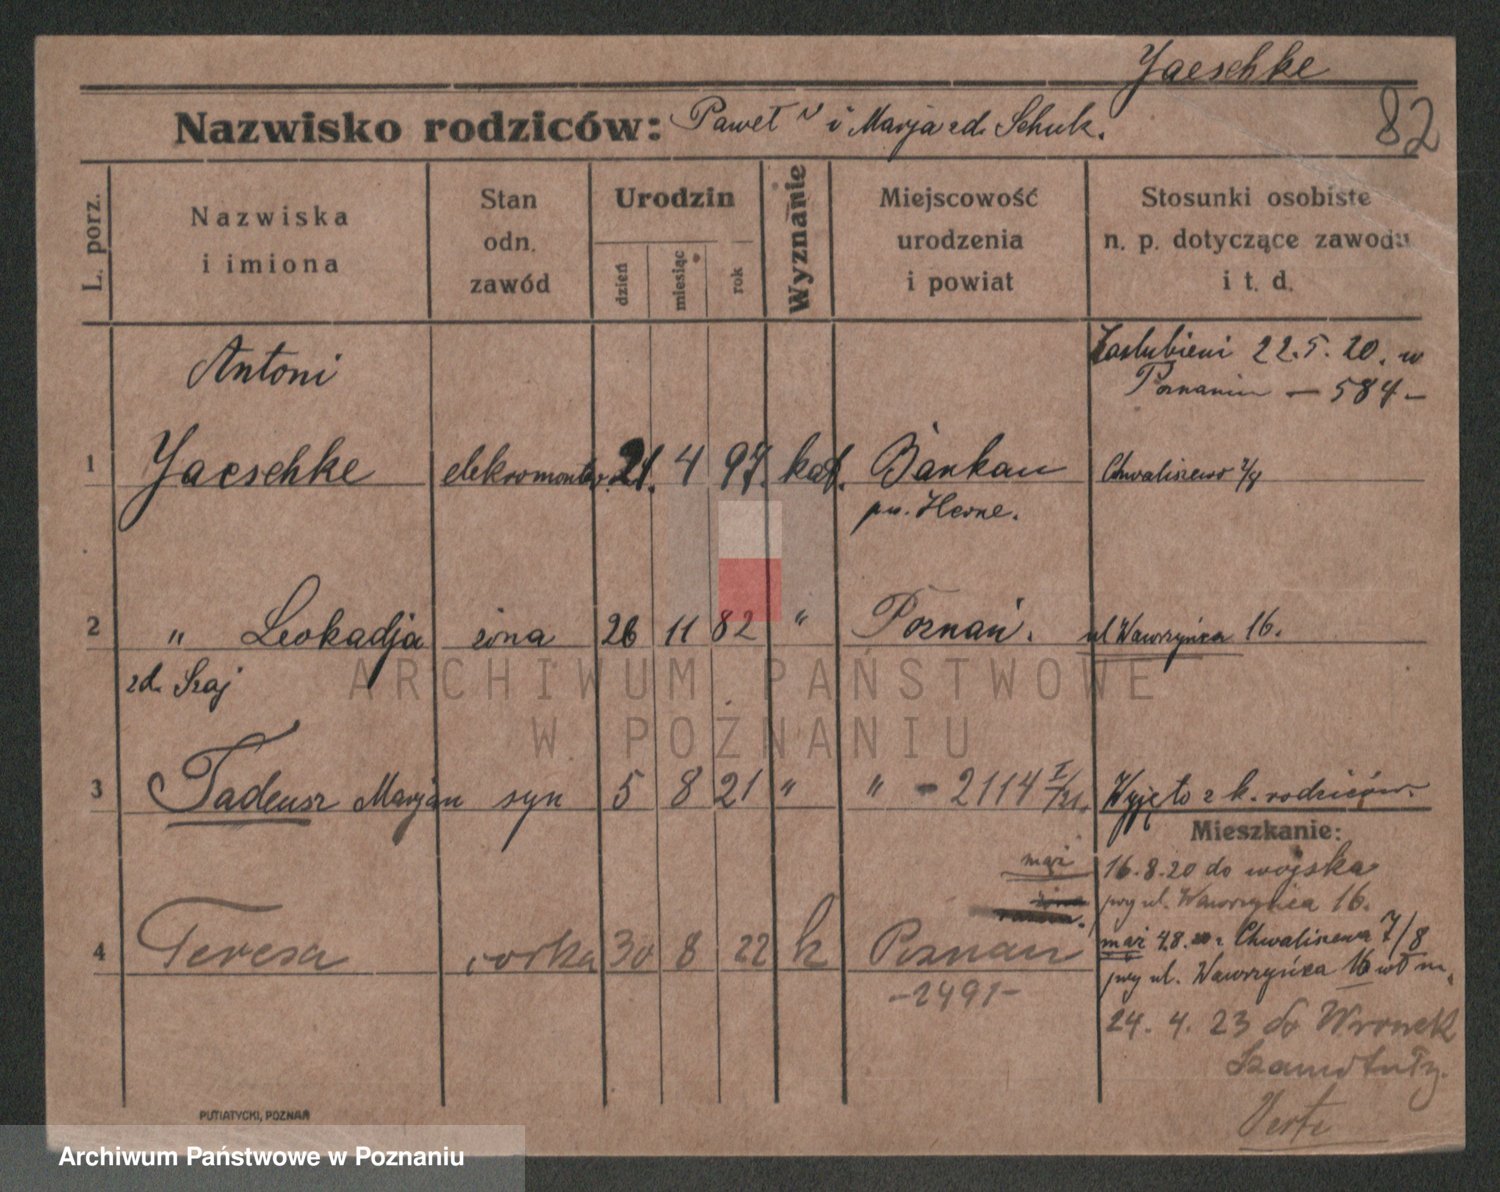 Jaeschke
82
Nazwisko rodziców: Paweł i Marja zd. Schuk.
L. porz.
Nazwiska i imiona
Stan odn. zawód
Urodzin
dzień
miesiąc
rok
Wyznanie
Miejscowość urodzenia i powiat
Stosunki osobiste n. p. dotyczące zawodu i t. d.
Antoni
Zaślubieni 22.5.20. w
Poznaniu — 584 —
1 Jaeschke elektromonter 21. 4 97. kat. Bankau Chwaliszewo 7/8
pw. Herne.
2 " Leokadja żona 26 11 82 " Poznań. ul Wawrzyńca 16.
zd. Szaj
3 Tadeusz Marjan syn 5 8 21 " " - 2114 I/21. Wyjęto z k. rodziców.
Mieszkanie:
mąż 16.8.20 do wojska
przy ul. Wawrzyńca 16.
mąż 4.8.20 z Chwaliszewa 7/8
4 Teresa córka 30 8 22 k Poznań
przy ul. Wawrzyńca 16 wł m.
-2491-
24. 4. 23 do Wronek
Szamotuły.
Verte
PUTIATYCKI, POZNAŃ
ARCHIWUM PAŃSTWOWE
W POZNANIU
Archiwum Państwowe w Poznaniu